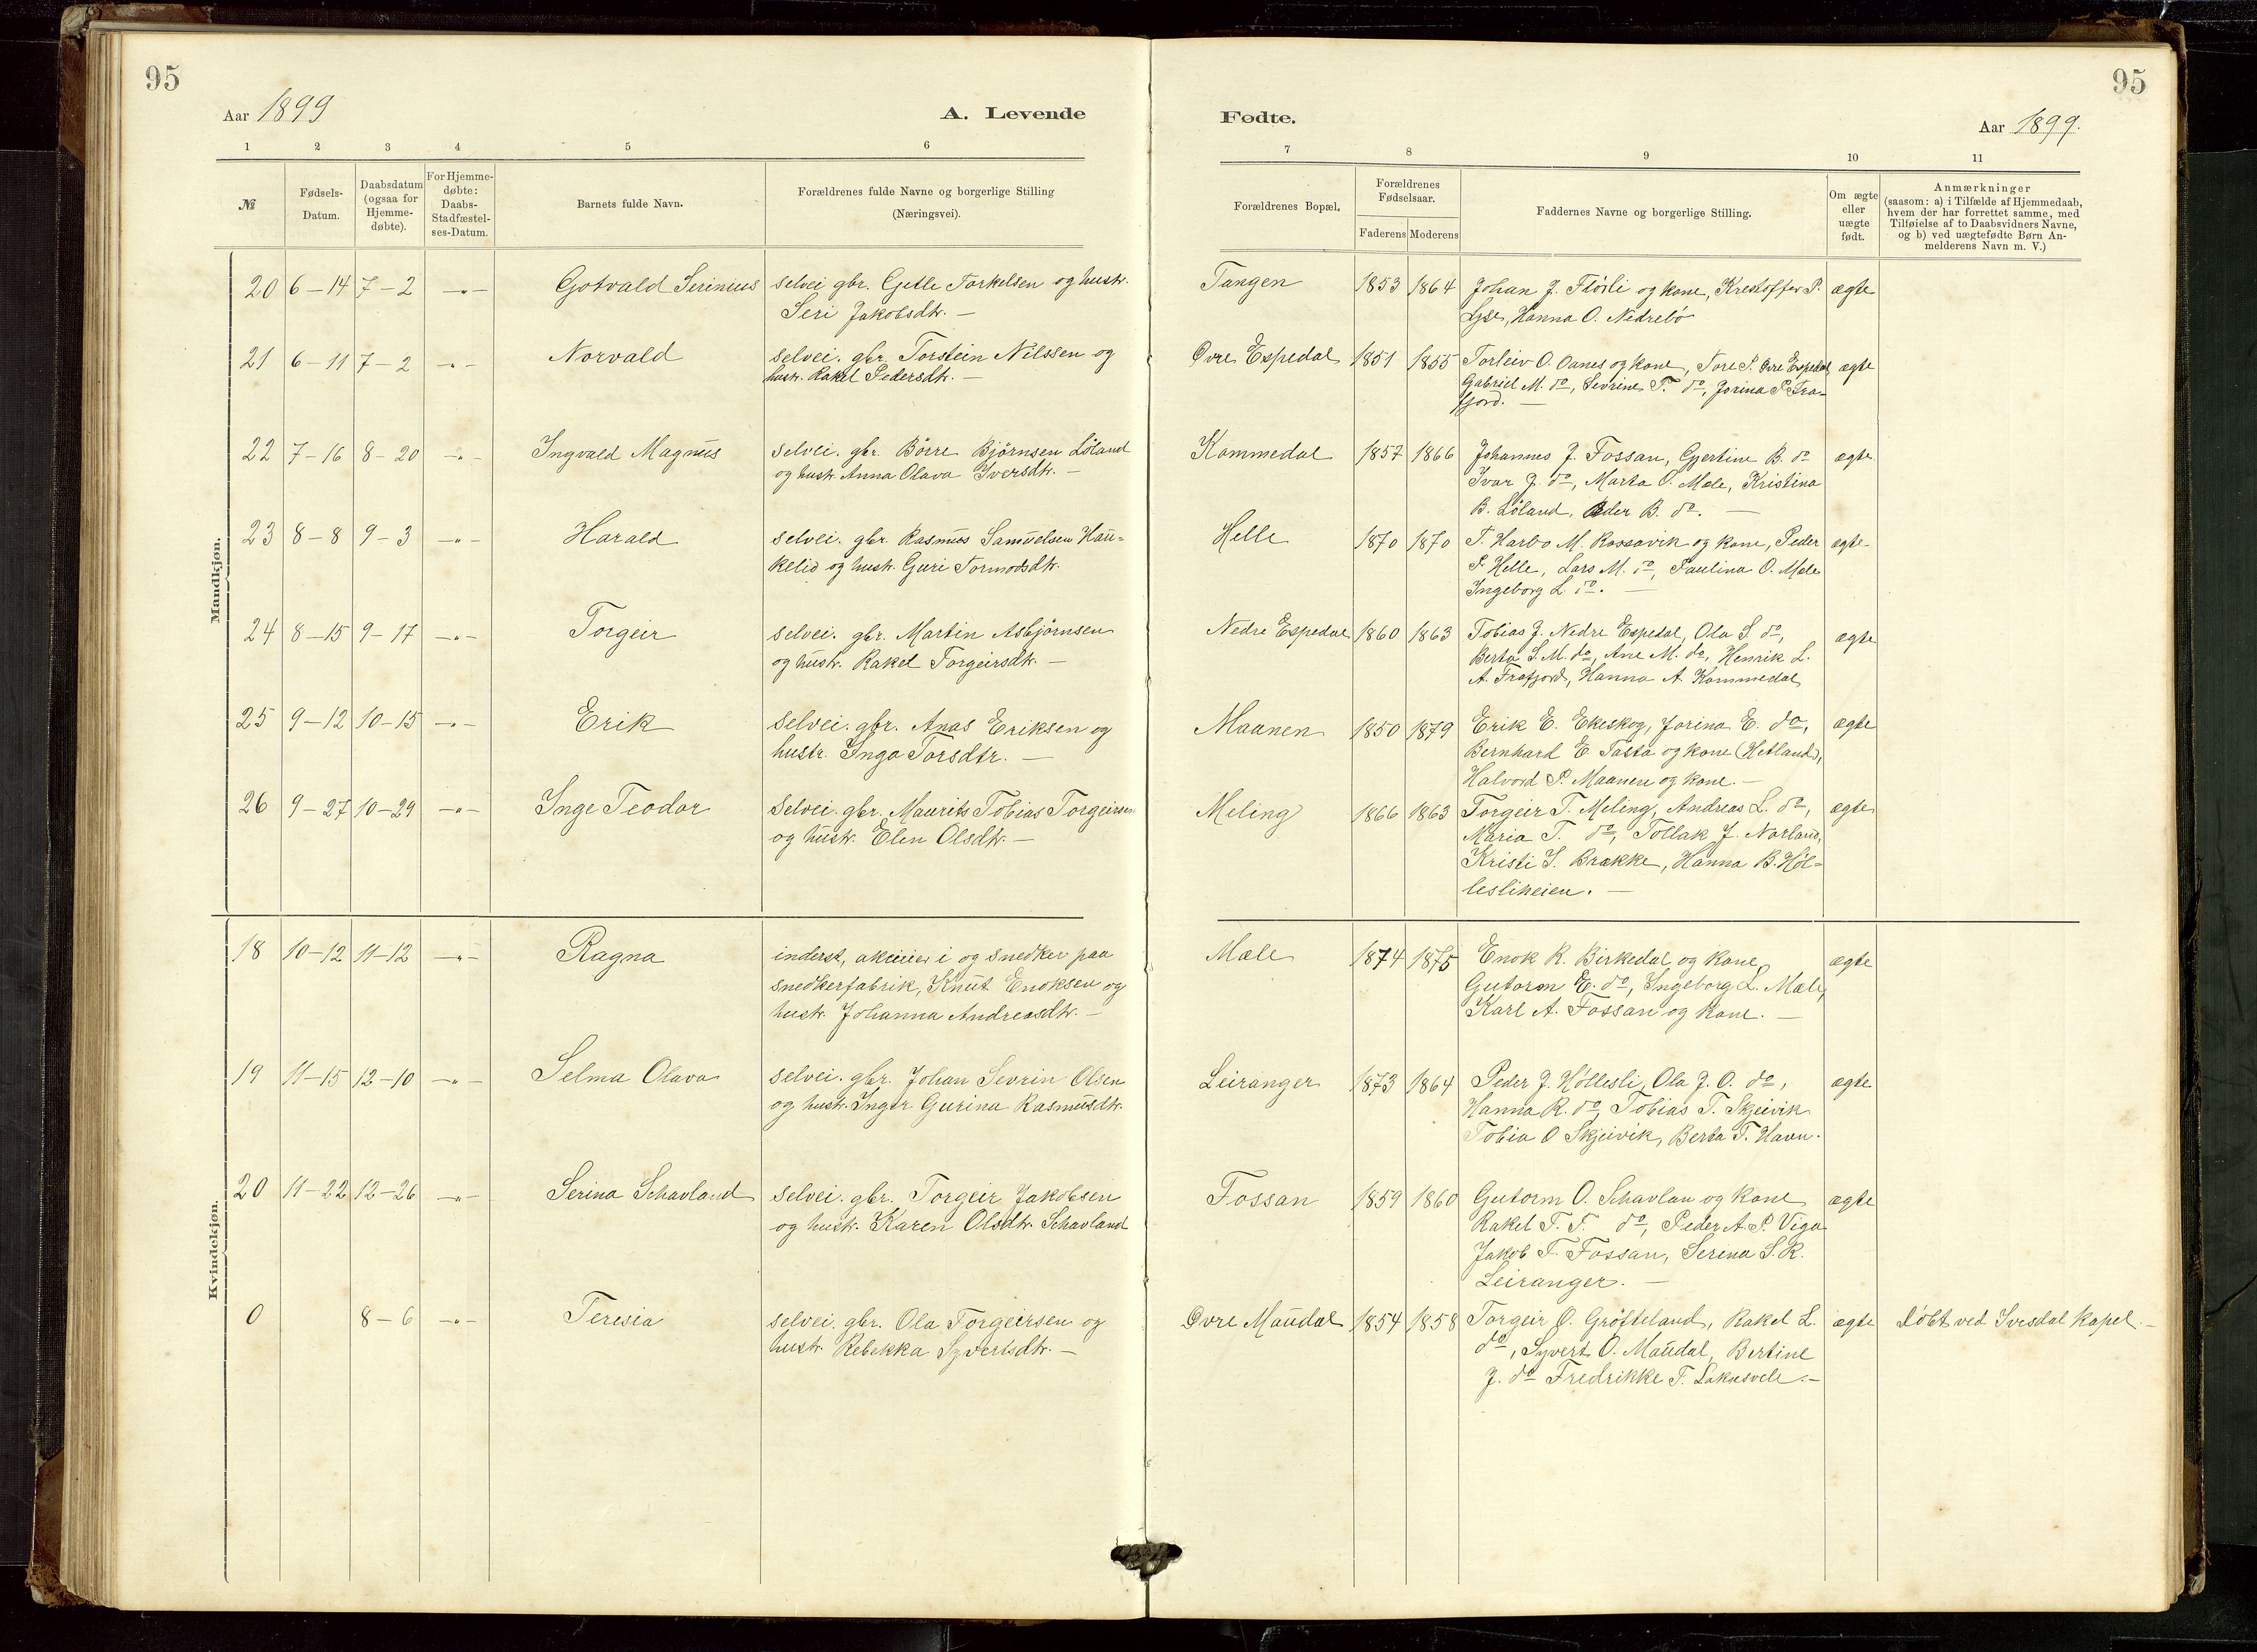 95
95
Aar 1899
A. Levende
Fødte.
Aar 1899.
1 2 3 4 5 6
7 8 9 10 11
№
Fødsels-
Datum.
Daabsdatum
(ogsaa for
Hjemme-
døbte).
For Hjemme-
døbte:
Daabs-
Stadfæstel-
ses-Datum.
Barnets fulde Navn.
Forældrenes fulde Navne og borgerlige Stilling
(Næringsvei).
Forældrenes Bopæl.
Forældrenes
Fødselsaar.
Faderens Moderens
Faddernes Navne og borgerlige Stilling.
Om ægte
eller
uægte
født.
Anmærkninger
(saasom: a) i Tilfælde af Hjemmedaab,
hvem der har forrettet samme, med
Tilføielse af to Daabsvidners Navne,
og b) ved uægtefødte Børn An-
melderens Navn m. V.)
Mandkjøn.
20 6-14 7-2 -"- Gotvald Serinius selvei gbr. Getle Torkelsen og hustr. Tangen 1853 1864 Johan J. Flörli og kone, Krestoffer P. ægte
Seri Jakobsdtr. - Lyse, Hanna O. Nedrebö
21 6-11 7-2 -"- Norvald selvei. gbr. Torstein Nilssen og Övre Espedal 1851 1855 Torleiv O. Oanes og kone, Tore P. Övre Espedal ægte
hustr. Rakel Pedersdtr. - Gabriel M. do, Sevrine T. do, Jorina P. Fra-
fjord. -
22 7-16 8-20 -"- Ingvald Magnus selvei. gbr. Börre Björnsen Löland Kommedal 1857 1866 Johannes J. Fossan, Gjertine B. do ægte
og hustr. Anna Olava Iversdtr. - Ivar J. do, Marta O. Mæle, Kristina
B. Löland, Peder B. do. -
23 8-8 9-3 -"- Harald selvei. gbr. Rasmus Samuelsen Hau- Helle 1870 1870 T. Harbo M. Rossavik og kone, Peder ægte
kelid og hustr. Guri Tormodsdtr. P. Helle, Lars M. do, Paulina O. Mæle
Ingeborg L. do. -
24 8-15 9-17 -"- Torgeir selvei. gbr. Martin Asbjørnsen Nedre Espedal 1860 1863 Tobias J. Nedre Espedal, Ola S. do, ægte
og hustr. Rakel Torgeirsdtr. - Berta S. M. do, Ane M. do, Henrik L.
A. Frafjord, Hanna A. Kommedal
25 9-12 10-15 -"- Erik selvei. gbr. Anas Eriksen og Maanen 1850 1879 Erik E. Ekeskog, Jorina E. do, ægte
hustr. Inga Torsdtr. - Bernhard E. Tasta og kone (Hetland),
Halvord P. Maanen og kone. -
26 9-27 10-29 -"- Inge Teodor Selvei. gbr. Maurits Tobias Torgeirsen Meling 1866 1863 Torgeir T. Meling, Andreas L. do, ægte
og hustr. Elen Olsdtr. - Maria T. do, Tollak J. Norland,
Kristi S. Brække, Hanna B. Höl-
lesliheien. -
Kvindekjøn.
18 10-12 11-12 -"- Ragna inderst, i og snedker paa Mæle 1874 1875 Enok R. Birkedal og kone, ægte
snedkerfabrik, Knut Enoksen og Gutorm E. do, Ingeborg L. Mæle,
hustr. Johanna Andreasdtr. - Karl A. Fossan og kone. -
19 11-15 12-10 -"- Selma Olava selvei. gbr. Johan Sevrin Olsen Leiranger 1873 1864 Peder J. Höllesli, Ola J. O. do, ægte
og hustr. Inger Gurina Rasmusdtr. Hanna R. do, Tobias T. Skjeivik
Tobia O Skjeivik, Berta T. Havn.
20 11-22 12-26 -"- Serina Schavland selvei. gbr. Torgeir Jakobsen Fossan 1859 1860 Gutorm O. Schavlan og kone ægte
og hustr. Karen Olsdtr. Schavland Rakel T. F. do, Peder A. P. Viga
Jakob T. Fossan, Serina S. R.
Leiranger. -
0 8-6 -"- Teresia selvei. gbr. Ola Torgeirsen og Övre Maudal 1854 1858 Torgeir O. Gröfteland, Rakel L. ægte Döbt ved Ivesdal kapel. -
hustr. Rebekka Syvertsdtr. - do, Syvert O. Maudal, Bertine
J. do Fredrikke T. Lakesvele. -